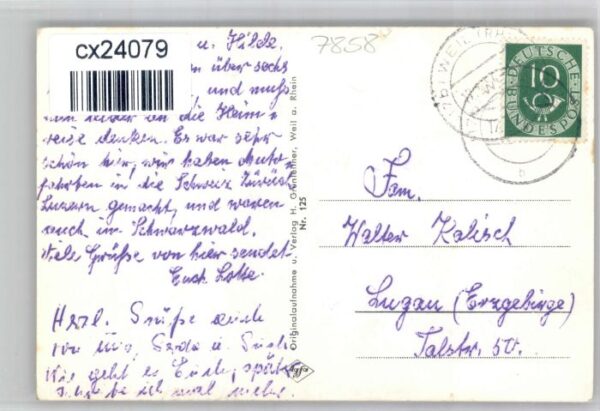 cx24079
u. Hilde,
über sechs
und muß
an die Heim-
reise denken. Es war sehr
schön hier, wir haben Auto-
fahrten in die Schweiz Zürich
Luzern gemacht, und waren
auch im Schwarzwald.
Viele Grüße von hier sendet
Euch Lotte.
Herzl. Grüße auch
von uns,
Wie geht es Euch, spät
ich mal mehr.
Originalaufnahme u. Verlag H. Weil a. Rhein
Nr. 125
Agfa
7858
WEIL (RH
DEUTSCHE
BUNDESPOST
10
Fam.
Walter Kalisch
Lugau (Erzgebirge)
Talstr. 50.